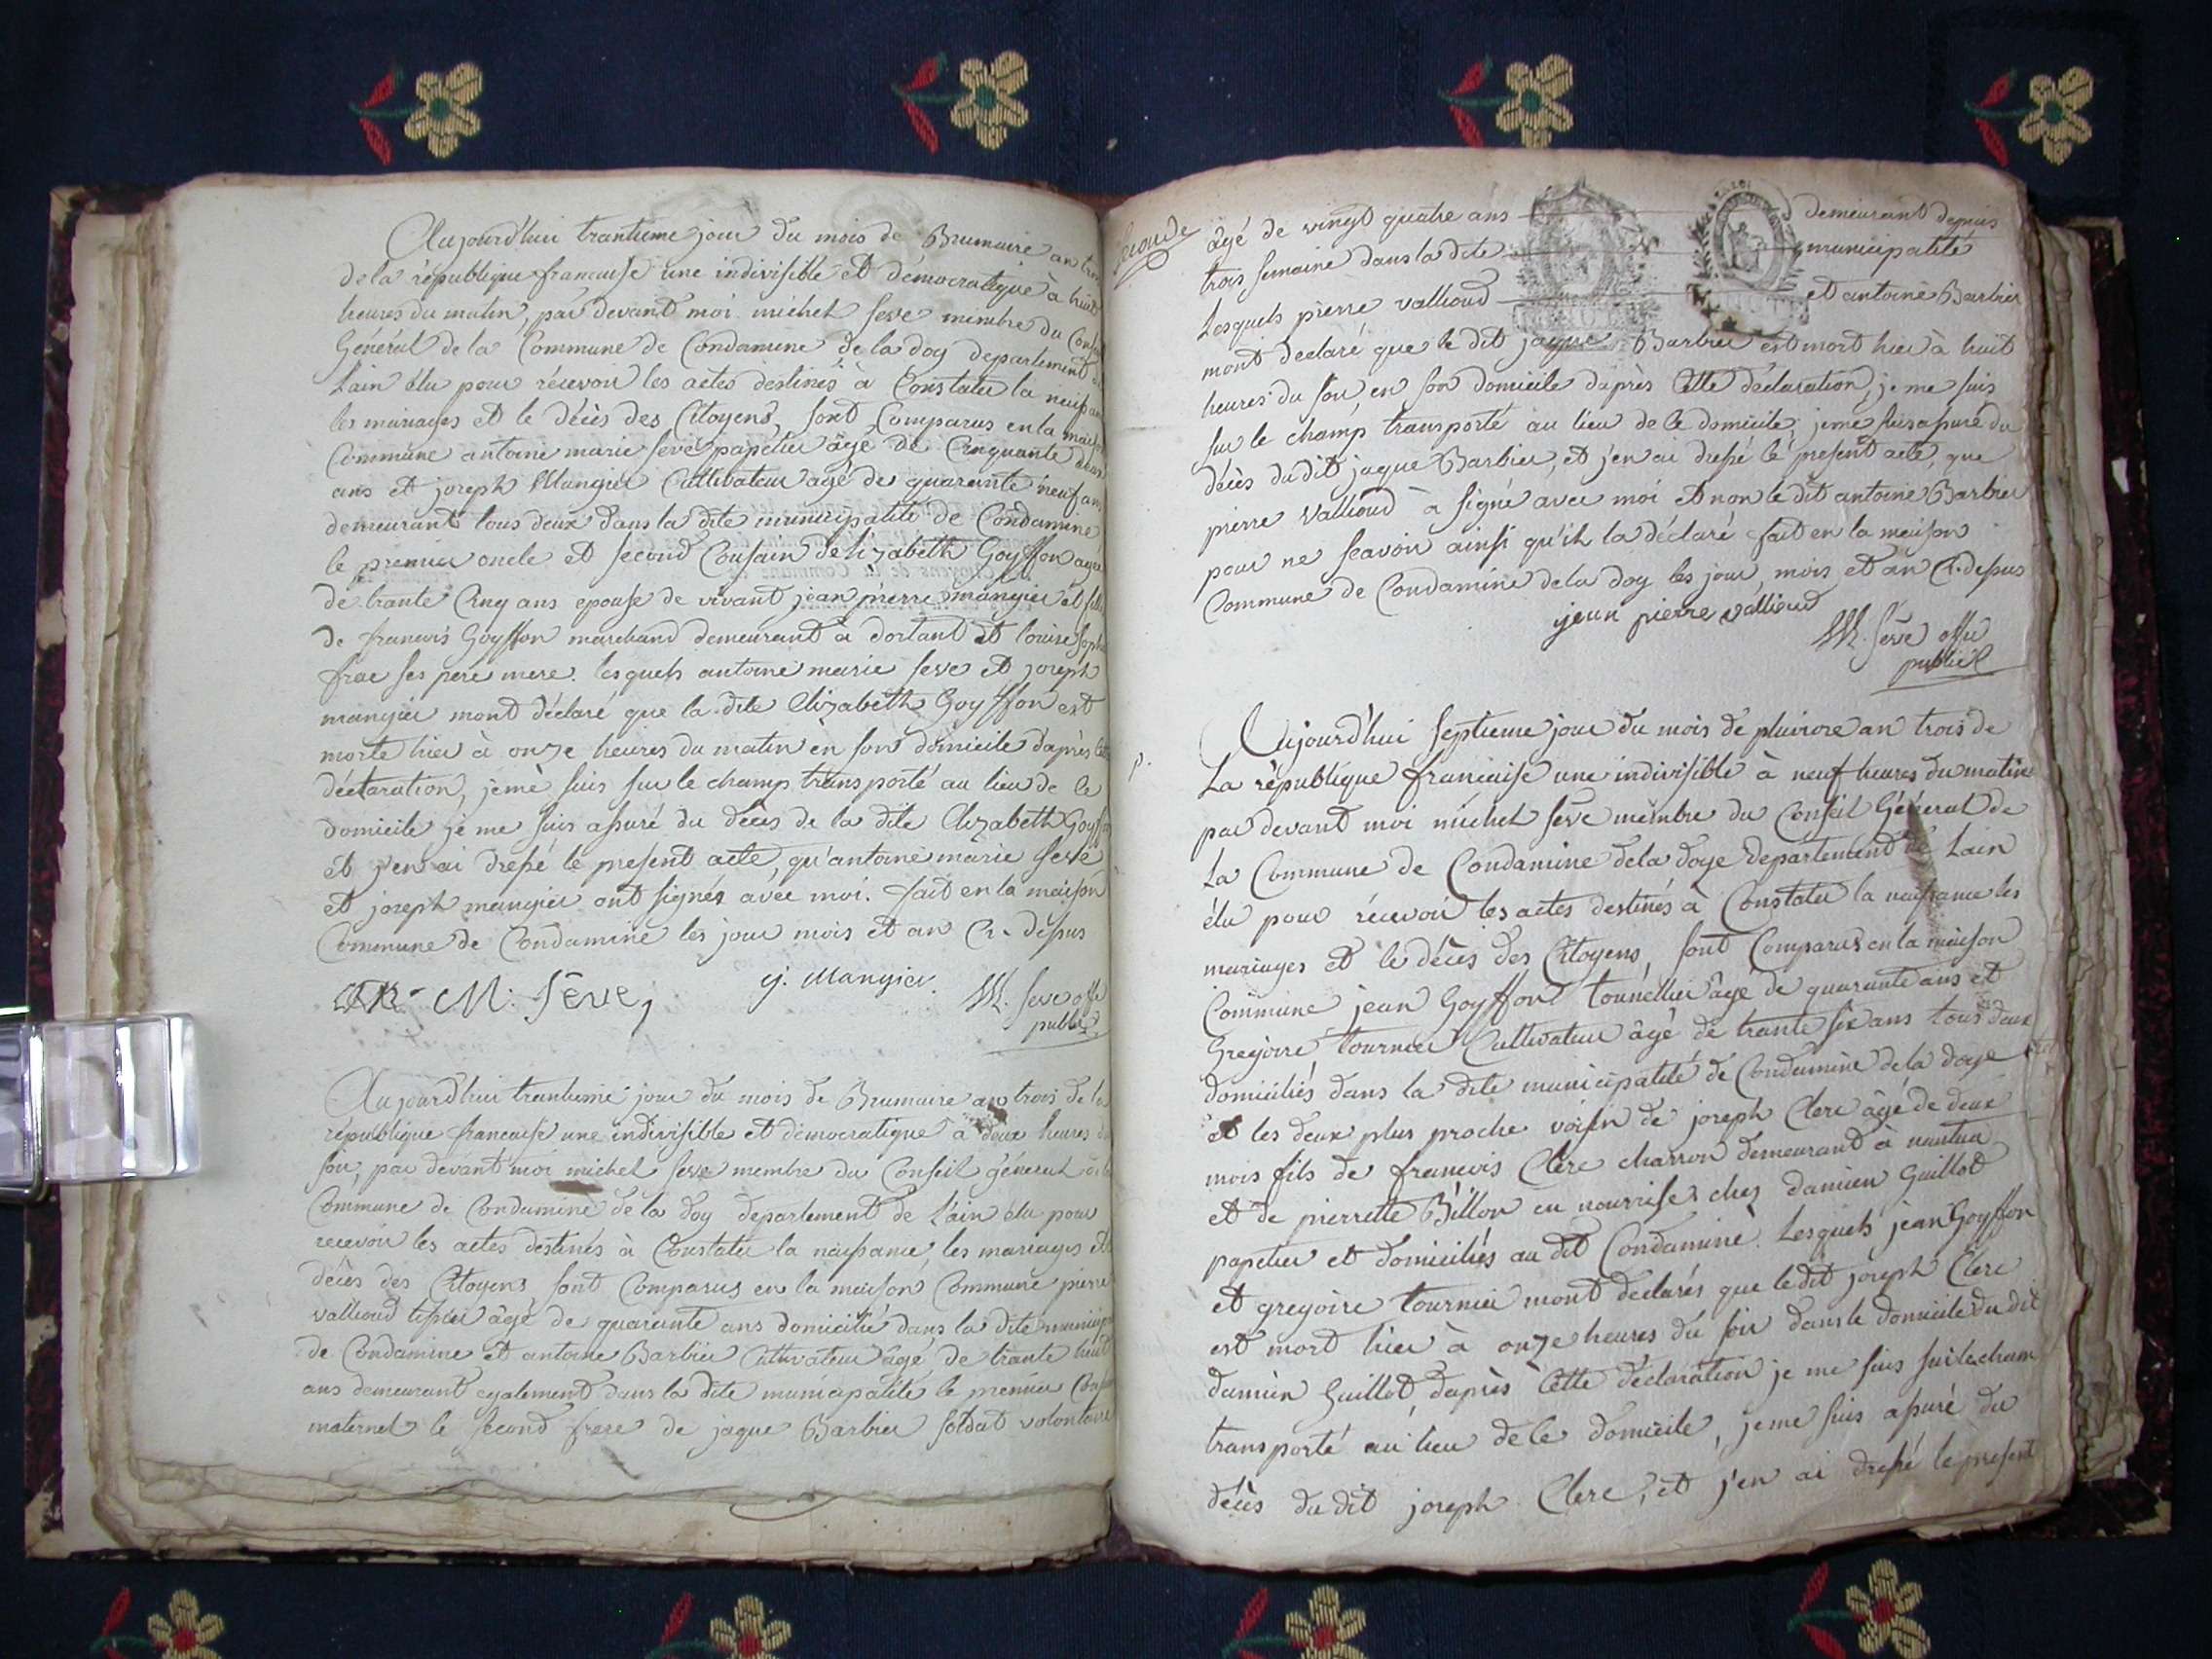 Aujourd'hui trantieme jour du mois de Brumaire an trois
de la république francaise une indivisible et démocratique à huit
heures du matin, par devant moi michel seve membre du Conseil
Général de la Commune de Condamine de la doy departement de
Lain élu pour récevoir les actes destinés à Constater la naissance
les mariages et le décès des Citoyens, sont Comparus en la maison
Commune antoine marie seve papetier âgé de Cinquante deux
ans et joseph Mangier Cultivateur âgé de quarante neuf ans
demeurant tous deux dans la dite municipalité de Condamine
le premier oncle et second Cousain delizabeth Goyffon agée
de trante Cinq ans epouse de vivant jean pierre mangier et fille
de francois Goyffon marchand demeurant à dortant et louise
frae ses pere mere. lesquels antoine marie seve et joseph
mangier mont déclaré que la dite Elizabeth Goyffon est
morte hier à onze heures du matin en son domicile daprès Cette
déclaration, jemé suis sur le champ transporté au lieu de le
domicile je me suis assuré du décès de la dite Elizabeth Goyffon
et j'en ai dressé le present acte, qu'antoine marie seve
et joseph mangier ont signés avec moi. fait en la maison
Commune de Condamine les jour mois et an Ci-dessus
M. Sêve, j. Mangier. M. seve offi
public
Aujourdhui trantieme jour du mois de Brumaire an trois de la
république francaise une indivisible et démocratique à deux heures du
soir, par devant moi michel seve membre du Conseil géneral de la
Commune de Condamine de la doy departement de Lain élu pour
recevoir les actes destinés à Constater la naissance, les mariages et
décès des Citoyens, sont Comparus en la maison Commune pierre
vallioud tissier âgé de quarante ans domicilié dans la dite municip
de Condamine et antoine Barbier Cultivateur âgé de trante huit
ans demeurant egalement dans la dite municipalité le premier Cousin
maternel le second frere de jaque Barbier soldat volontaire
seconde
âgé de vingt quatre ans demeurant depuis
trois semaine dans la dite municipalité
Lesquels pierre vallioud et antoine Barbier
mont declaré que le dit jaque Barbier est mort hier à huit
heures du soir, en son domicile daprès Cette déclaration, je me suis
sur le champ transporté au lieu de le domicile, jeme suis assuré du
décès du dit jaque Barbier, et j'en ai dressé lé present acte, que
pierre Vallioud à signé avec moi et non le dit antoine Barbier
pour ne scavoir ainsi qu'il la déclaré fait en la maison
Commune de Condamine de la doy les jour, mois et an Ci-dessus
jean pierre vallioud
M. seve offi
public
p.
Aujourd'hui septieme jour du mois de pluviore an trois de
La république francaise une indivisible à neuf heures du matin
par devant moi michel séve membre du Conseil Général de
La Commune de Condamine dela doye departement de Lain
élu pour récevoir les actes destinés à Constater la naissance les
mariages et le décès des Citoyens, sont Comparus en la maison
Commune jean Goyffon tounellier âgé de quarante ans et
Gregoire tournier Cultivateur âgé de trante six ans tous deux
domiciliés dans la dite municipalité de Condamine dela doye
et les deux plus proche voisin de joseph Clerc âgé de deux
mois fils de francois Clerc charron demeurant à nantua
et de pierrette Billon en nourrise chez damien Guillot
papetier et domiciliés au dit Condamine. Lesquels jean Goyffon
et gregoire tournier mont declarés que ledit joseph Clerc
est mort hier à onze heures du soir dans le domicile du dit
damien Guillot, daprès Cette déclaration je me suis sur le cham
transporté au lieu de le domicile, jeme suis assuré du
décès du dit joseph Clerc, et j'en ai dressé le present